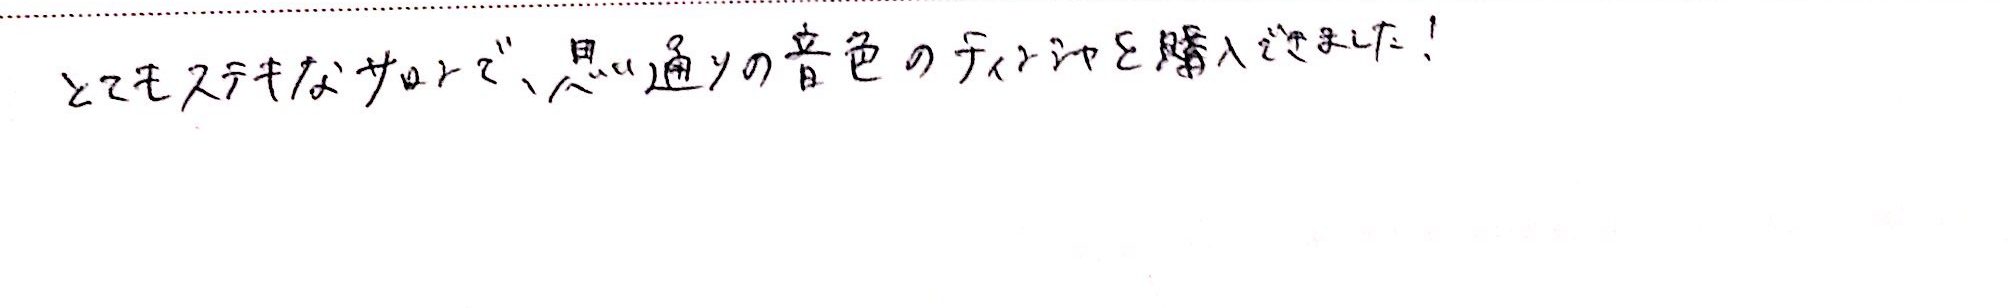 とてもステキなサロンで、思い通りの音色のティンシャを購入できました!